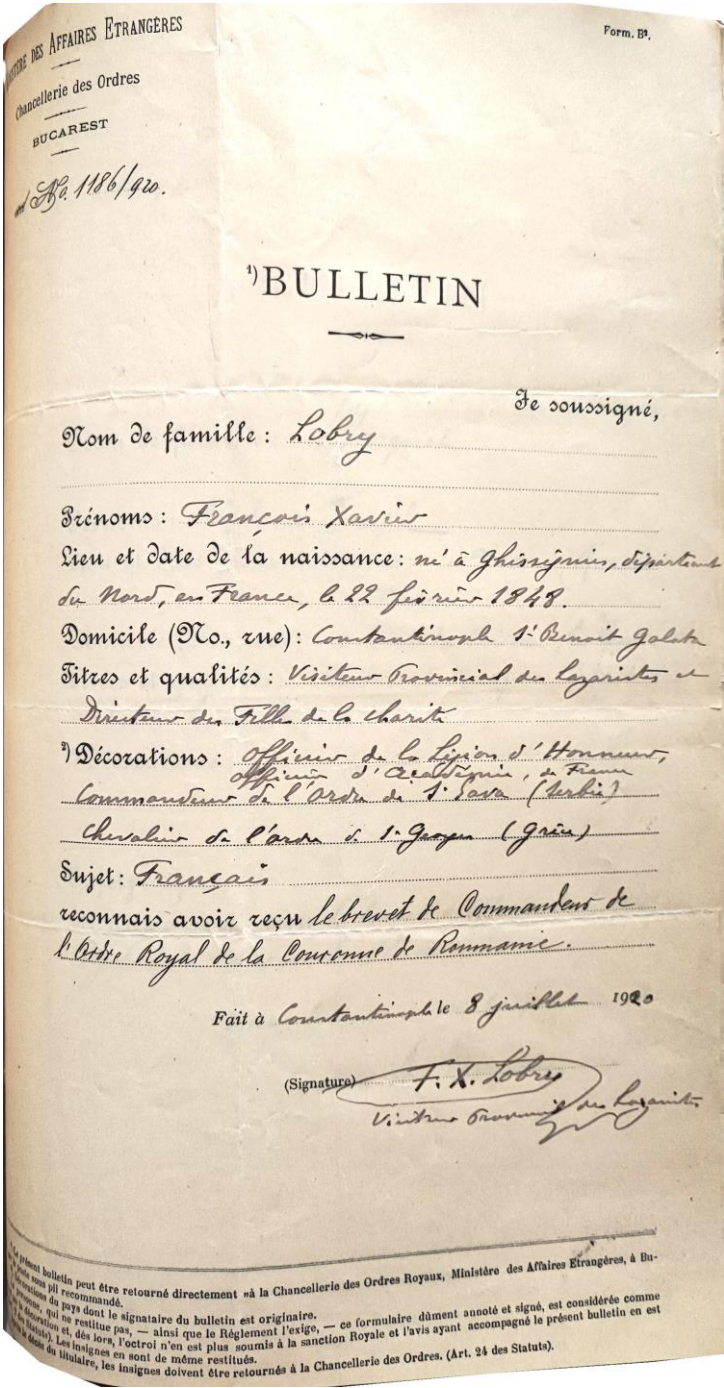 MINISTÈRE DES AFFAIRES ETRANGÈRES
Chancellerie des Ordres
BUCAREST
No. 1186/920.
Form. B².
¹) BULLETIN
Je soussigné,
Nom de famille : Lobry
Prénoms : François Xavier
Lieu et date de la naissance : né à Ghissignies, département
du Nord, en France, le 22 février 1848.
Domicile (No., rue) : Constantinople St Benoit Galata
Titres et qualités : Visiteur Provincial des Lazaristes et
Directeur des Filles de la charité
²) Décorations : officier de la Légion d'Honneur,
officier d'Académie, de France
Commandeur de l'Ordre de St Sava (Serbie)
Chevalier de l'ordre de St Georges (Grèce)
Sujet : Français
reconnais avoir reçu le brevet de Commandeur de
l'Ordre Royal de la Couronne de Roumanie.
Fait à Constantinople le 8 juillet 1920
(Signature) F. X. Lobry
Visiteur Provincial des Lazaristes
présent bulletin peut être retourné directement »à la Chancellerie des Ordres Royaux, Ministère des Affaires Etrangères, à Bu-
sous pli recommandé.
décorations du pays dont le signataire du bulletin est originaire.
qui ne restitue pas, — ainsi que le Règlement l'exige, — ce formulaire dûment annoté et signé, est considérée comme
décoration et, dès lors, l'octroi n'en est plus soumis à la sanction Royale et l'avis ayant accompagné le présent bulletin en est
Les insignes en sont de même restitués.
décès du titulaire, les insignes doivent être retournés à la Chancellerie des Ordres. (Art. 24 des Statuts).